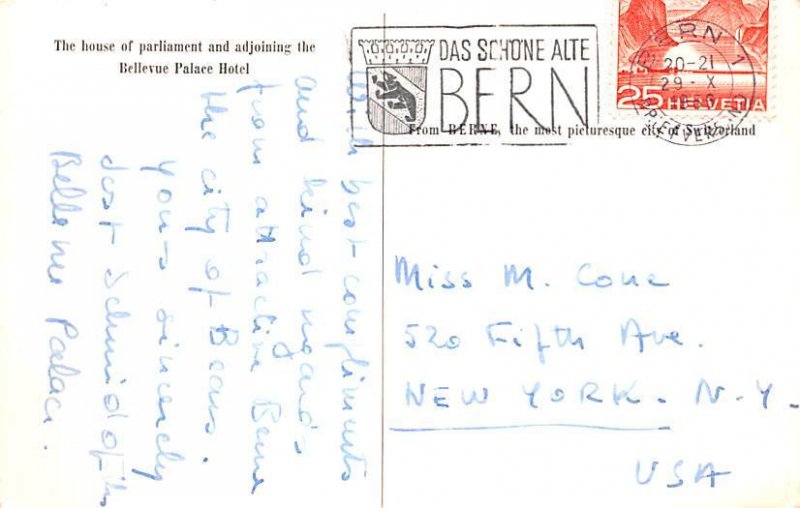 The house of parliament and adjoining the
Bellevue Palace Hotel
DAS SCHÖNE ALTE
BERN
From BERNE, the most picturesque city of Switzerland
BERN 1
20-21
29 X
25 HELVETIA
With best compliments
and kind regards
from attractive Berne
the city of Bears.
yours sincerely
Schmid of the
Bellevue Palace.
Miss M. Cone
520 Fifth Ave.
NEW YORK. N.Y.
USA